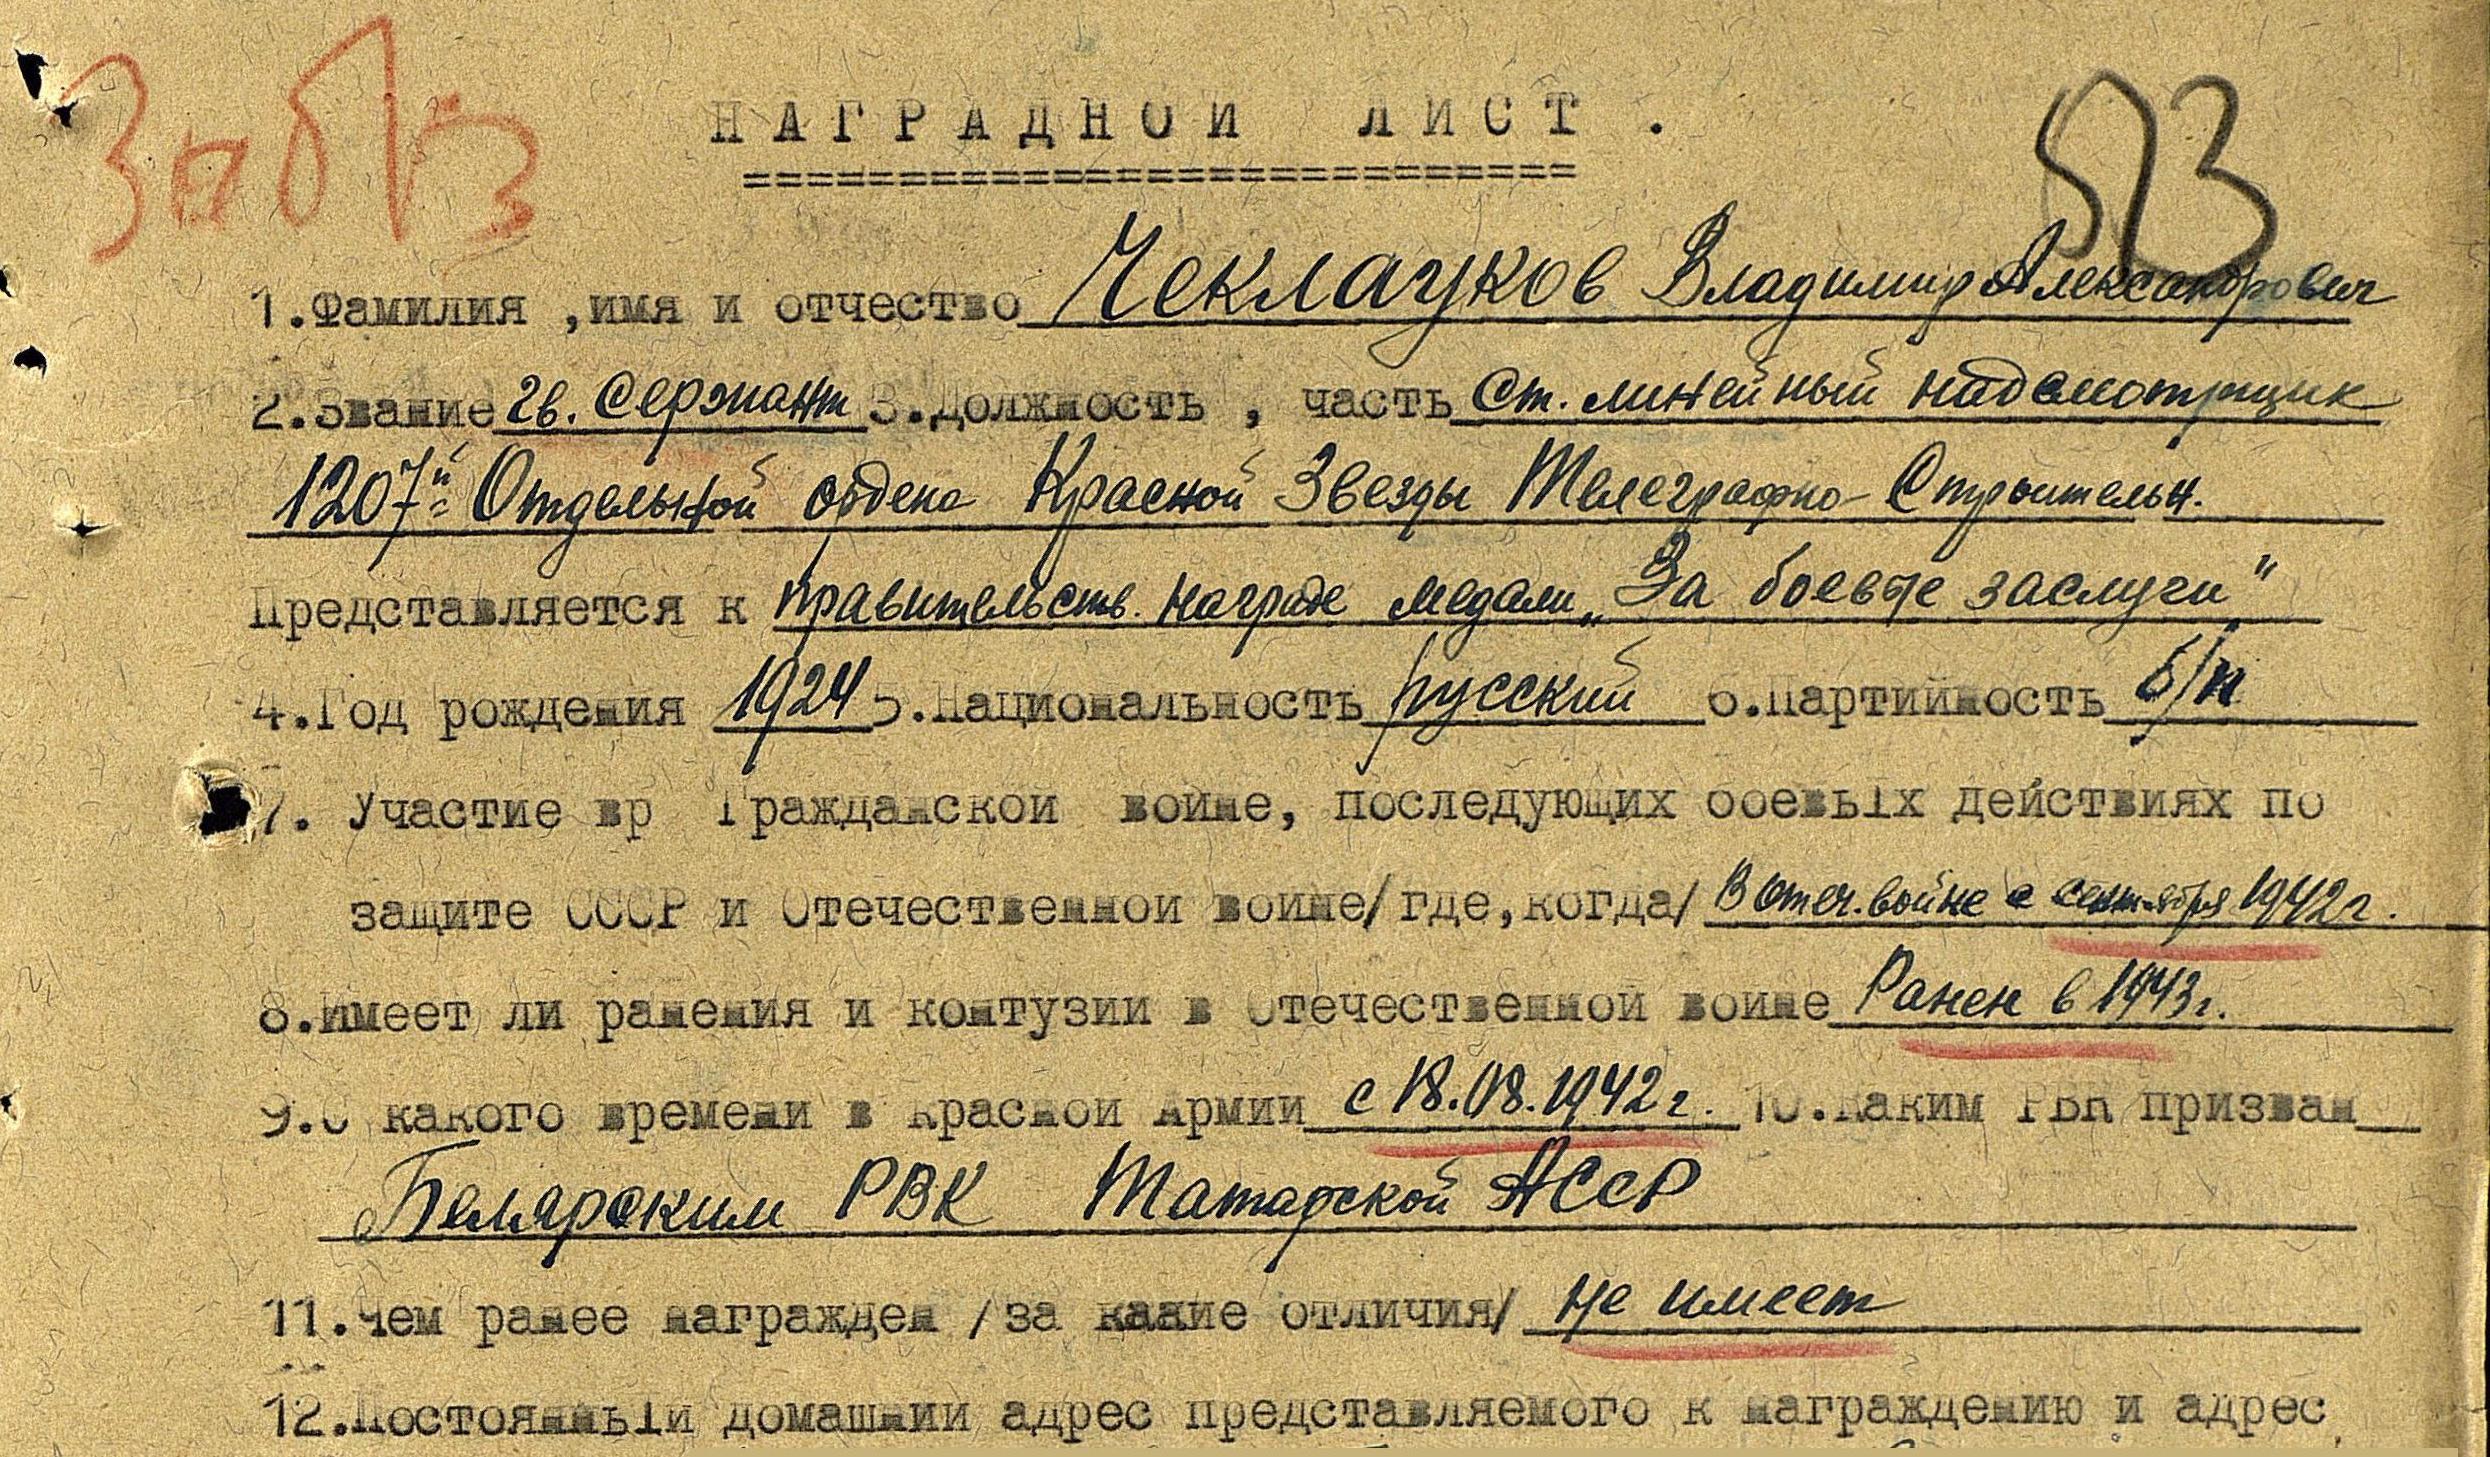 593
НАГРАДНОЙ ЛИСТ.
1.Фамилия ,имя и отчество Чеклауков Владимир Александрович
2.Звание гв. Сержант 3.Должность , часть Ст. линейный надсмотрщик
1207й Отдельной ордена Красной Звезды Телеграфно-Строительн.
Представляется к правительств. награде медали „За боевые заслуги"
4.Год рождения 1924 5.Национальность русский 6.Партийность б/п
7. Участие вр Гражданской войне, последующих боевых действиях по
защите СССР и Отечественной войне/где,когда/ В отеч. войне с сентября 1942г.
8.Имеет ли ранения и контузии в Отечественной войне Ранен в 1943г.
9.С какого времени в Красной Армии с 18.08.1942г. 10.Каким РВК призван
Билярским РВК Татарской АССР
11.Чем ранее награжден /за какие отличия/ не имеет
12.Постоянный домашний адрес представляемого к награждению и адрес